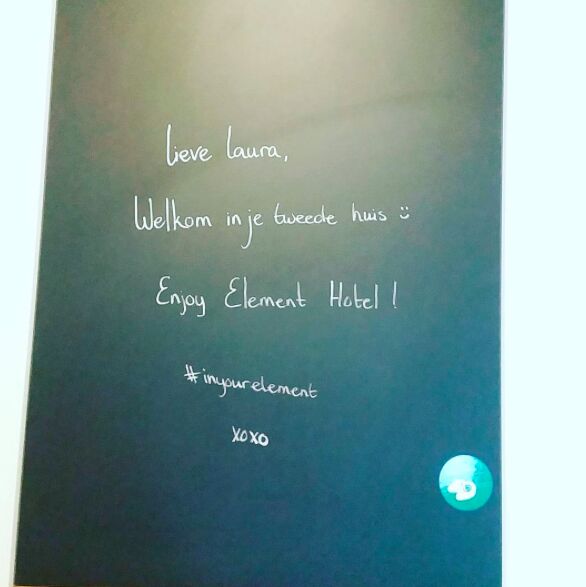 Lieve Laura,
Welkom in je tweede huis :)
Enjoy Element Hotel!
#inyourelement
xoxo